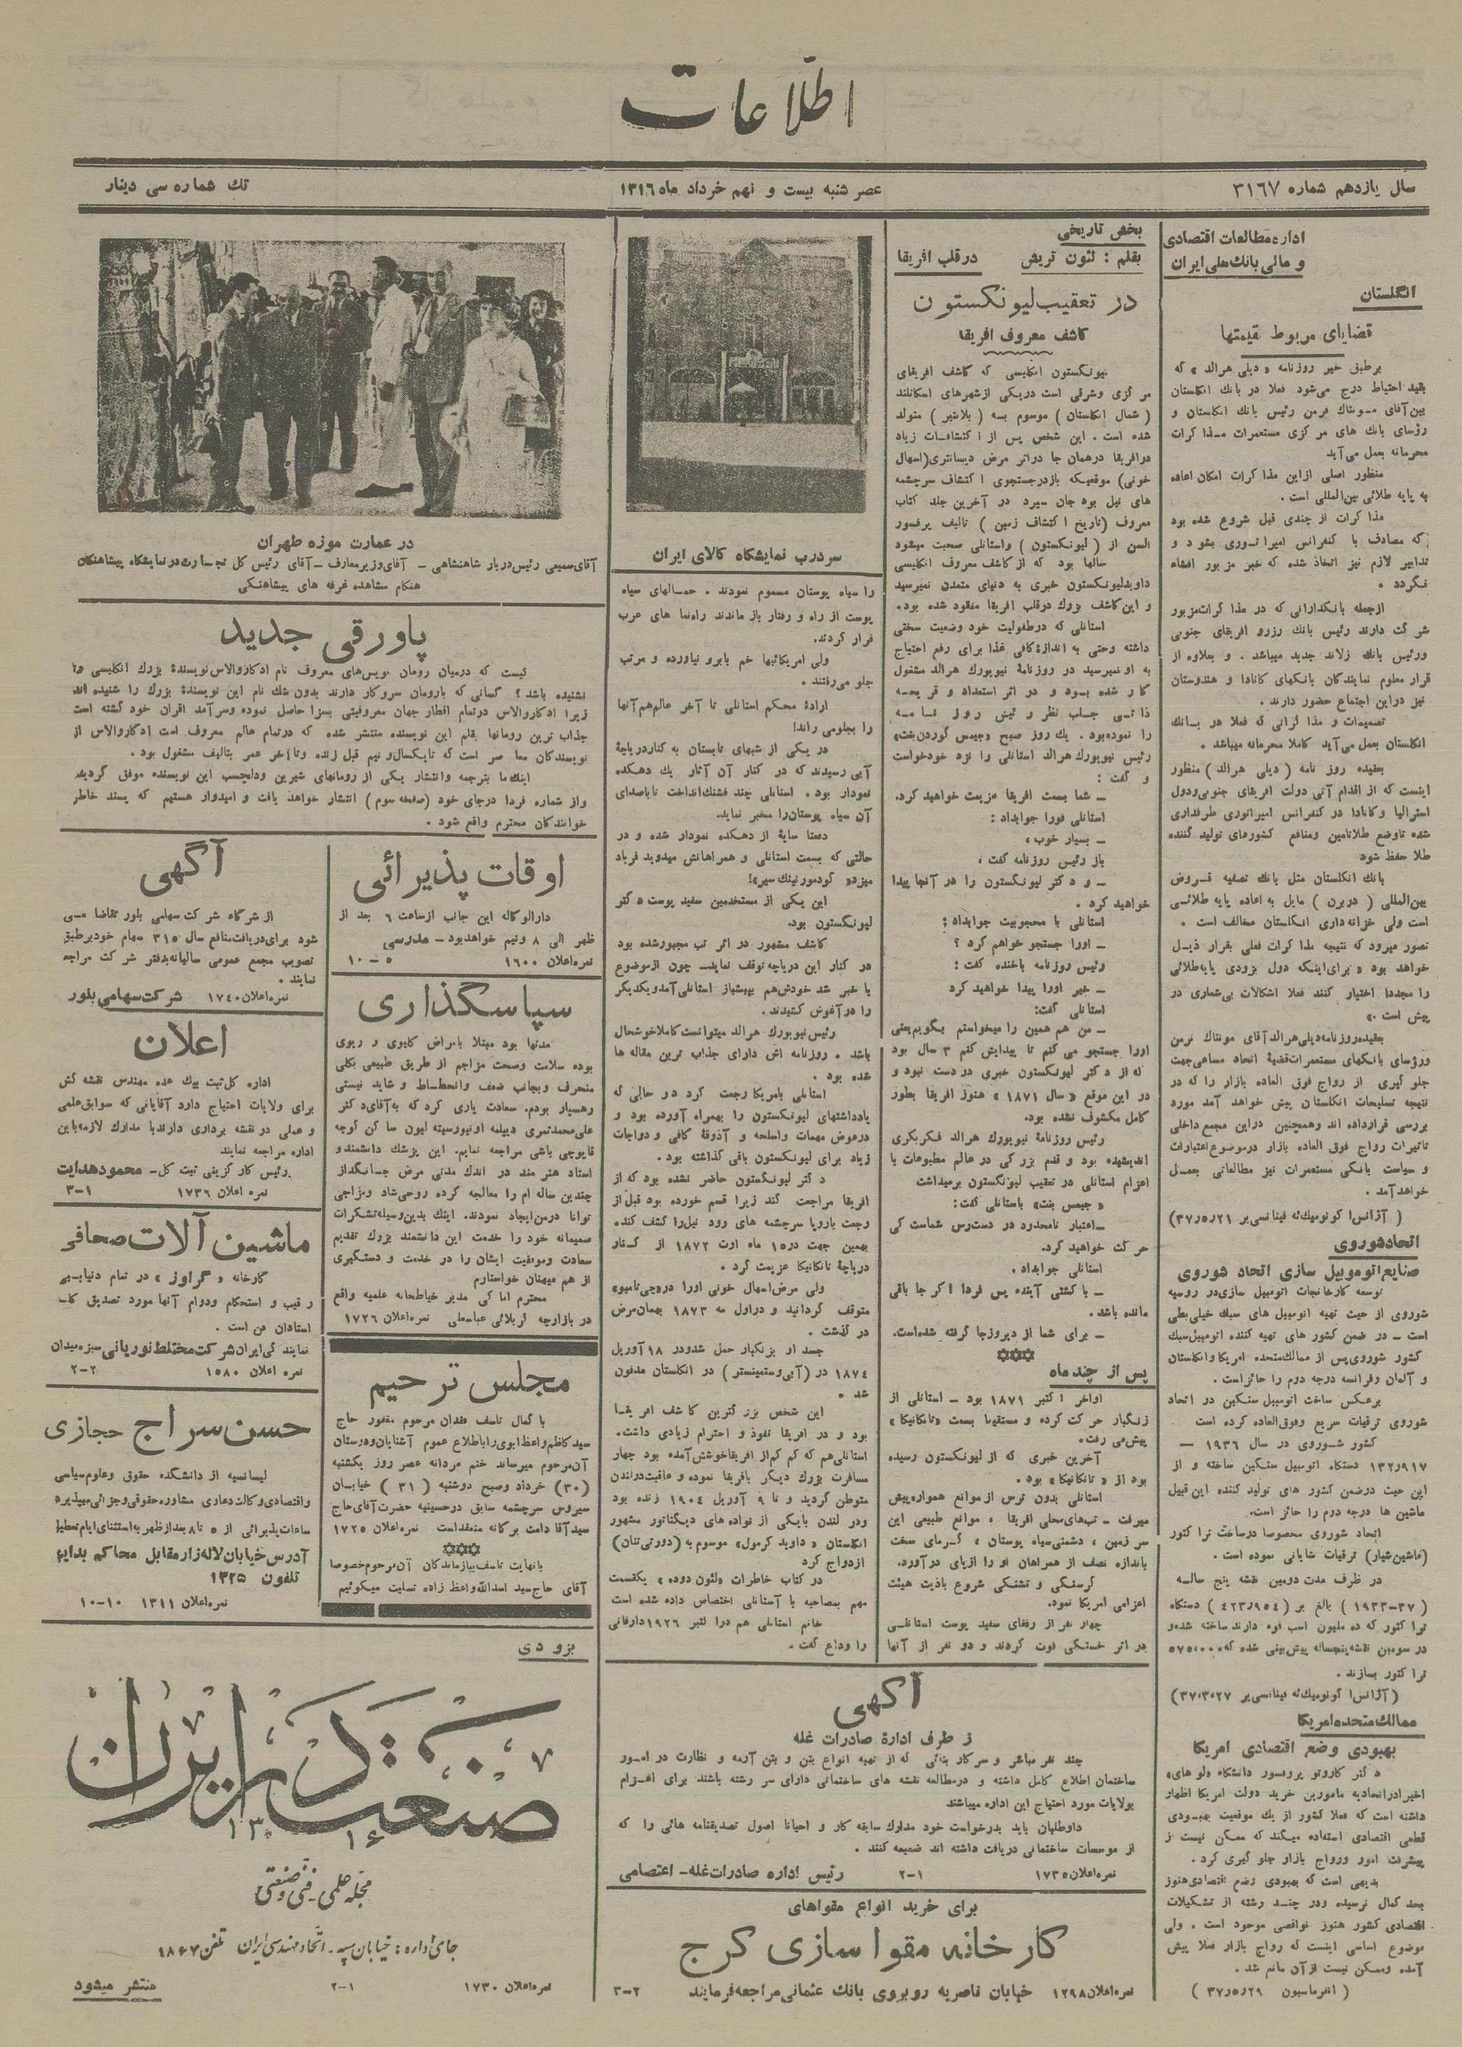 اطلاعات
سال یازدهم شماره ۳۱۶۷
عصر شنبه بیست و نهم خرداد ماه ۱۳۱۶
تك شماره سی دینار
اداره مطالعات اقتصادی
و مالی بانك ملی ایران
انگلستان
قضایای مربوط بقیمتها
برطبق خبر روزنامه « دیلی هرالد » که
بقید احتیاط درج می‌شود فعلا در بانك انگلستان
بین آقای مونتاك نرمن رئیس بانك انگلستان و
رؤسای بانك های مرکزی مستعمرات مذاکرات
محرمانه بعمل می‌آید
منظور اصلی از این مذاکرات امکان اعاده
به پایه طلائی بین‌المللی است .
مذاکرات از چندی قبل شروع شده بود
که مصادف با کنفرانس امپراتوری بشود و
تدابیر لازم نیز اتخاذ شده که خبر مزبور افشاء
نگردد .
ازجمله بانکدارانی که در مذاکرات مزبور
شرکت دارند رئیس بانك رزرو افریقای جنوبی
ورئیس بانك زلاند جدید میباشد . و بعلاوه از
قرار معلوم نمایندگان بانکهای کانادا و هندوستان
نیز دراین اجتماع حضور دارند .
تصمیمات و مذاکراتی که فعلا در بانك
انگلستان بعمل می‌آید کاملا محرمانه میباشد .
بعقیده روز نامه ( دیلی هرالد ) منظور
اینست که از اقدام آنی دولت افریقای جنوبی ودول
استرالیا و کانادا در کنفرانس امپراتوری طرفداری
شده تا وضع طلا تامین ومنافع کشورهای تولید کننده
طلا حفظ شود
بانك انگلستان مثل بانك تصفیه قروض
بین‌المللی ( دربرن ) مایل به اعاده پایه طلائی
است ولی خزانه‌داری انگلستان مخالف است .
تصور میرود که نتیجه مذاکرات فعلی بقرار ذیل
خواهد بود « برای اینکه دول بزودی پایه طلائی
را مجددا اختیار کنند فعلا اشکالات بی‌شماری در
پیش است .»
بعقیده روزنامه دیلی هرالد آقای مونتاك نرمن
ورؤسای بانکهای مستعمرات قضیهٔ اتحاد مساعی جهت
جلو گیری از رواج فوق العاده بازار را که در
نتیجه تسلیحات انگلستان پیش خواهد آمد مورد
بررسی قرارداده اند وهمچنین دراین مجمع داخلی
تاثیرات رواج فوق العاده بازار درموضوع اعتبارات
و سیاست بانکی مستعمرات نیز مطالعاتی بعمل
خواهد آمد .
( آژانس اکونومیك ئه فینانسی یر ۳۷٫۵٫۲۱)
اتحاد شوروی
صنایع اتوموبیل سازی اتحاد شوروی
توسعه کارخانجات اتومبیل سازی در روسیه
شوروی از حیث تهیه اتومبیل های سبك خیلی بطی
است – در ضمن کشور های تهیه کننده اتومبیل سبك
کشور شوروی پس از ممالك متحده امریکا وانگلستان
و آلمان وفرانسه درجه دوم را حائزاست .
برعکس ساخت اتومبیل سنگین در اتحاد
شوروی ترقیات سریع وفوق العاده کرده است
کشور شوروی در سال ۱۹۳۶ –
۱۳۲٫۹۱۷ دستگاه اتومبیل سنگین ساخته و از
این حیث درضمن کشور های تولید کننده این قبیل
ماشین ها درجه دوم را حائز است .
اتحاد شوروی مخصوصا درساخت تراکتور
(ماشین شیار) ترقیات شایانی نموده است .
در ظرف مدت دومین نقشه پنج ساله
(۳۷–۱۹۳۳ ) بالغ بر (۴۲۳٫۹۵۴ ) دستگاه
تراکتور که ده ملیون اسب قوه دارند ساخته شده و
در سومین نقشه پنجساله پیش بینی شده که ۵۷۵٫۰۰۰
تراکتور بسازند .
( آژانس اکونومیك ئه فینانسی یر ۳۷٫۳٫۲۷)
ممالك متحده امریکا
بهبودی وضع اقتصادی امریکا
دکتر کاروتو پروفسور دانشگاه «لوهای»
اخیرا در اتحادیه مامورین خرید دولت امریکا اظهار
داشته است که فعلا کشور از یك موقعیت بهبودی
قطعی اقتصادی استفاده میکند که ممکن نیست از
پیشرفت امور ورواج بازار جلو گیری کرد .
بدیهی است که بهبودی وضع اقتصادی هنوز
بحد کمال نرسیده ودر چند رشته از تشکیلات
اقتصادی کشور هنوز نواقصی موجود است . ولی
موضوع اساسی اینست که رواج بازار فعلا پیش
آمده وممکن نیست از آن مانع شد .
( انفرماسیون ۳۷٫۵٫۲۹ )
بخش تاریخی
بقلم : لئون تریش
در قلب افریقا
در تعقیب لیونگستون
کاشف معروف افریقا
لیونگستون انگلیسی که کاشف افریقای
مرکزی وشرقی است دریکی ازشهرهای اسکاتلند
( شمال انگلستان ) موسوم به ( بلانتیر ) متولد
شده است . این شخص پس از اکتشافات زیاد
درافریقا درهمان جا دراثر مرض دیسانتری(اسهال
خونی) موقعیکه بازدرجستجوی اکتشاف سرچشمه
های نیل بود جان سپرد در آخرین جلد کتاب
معروف (تاریخ اکتشاف زمین ) تالیف پرفسور
السن از ( لیونگستون ) واستانلی صحبت میشود
سالها بود که از کاشف معروف انگلیسی
داوید لیونگستون خبری به دنیای متمدن نمیرسید
و این کاشف بزرك درقلب افریقا مفقود شده بود.
استانلی که درطفولیت خود وضعیت سختی
داشته وحتی به اندازهٔ کافی غذا برای رفع احتیاج
به او نمیرسید در روزنامهٔ نیویورك هرالد مشغول
کار شده بود و در اثر استعداد و قریحه
ذاتی جلب نظر رئیس روزنامه
را نموده بود . یك روز صبح «جیمس گوردن بنت»
رئیس نیویورك هرالد استانلی را نزد خود خواست
و گفت :
– شما بسمت افریقا عزیمت خواهید کرد.
استانلی فورا جوابداد :
– بسیار خوب ،
باز رئیس روزنامه گفت ،
– و دکتر لیونگستون را در آنجا پیدا
خواهید کرد .
استانلی با محجوبیت جوابداد :
– اورا جستجو خواهم کرد ؟
رئیس روزنامه باخنده گفت :
– خیر اورا پیدا خواهید کرد
استانلی گفت:
– من هم همین را میخواستم بگویم یعنی
اورا جستجو می کنم تا پیدایش کنم ۳ سال بود
که از دکتر لیونگستون خبری در دست نبود و
در این موقع « سال ۱۸۷۱ » هنوز افریقا بطور
کامل مکشوف نشده بود.
رئیس روزنامهٔ نیویورك هرالد فکر بکری
اندیشیده بود و قدم بزرگی در عالم مطبوعات با
اعزام استانلی در تعقیب لیونگستون برمیداشت
« جیمس بنت» باستانلی گفت:
– اعتبار نامحدود در دست‌رس شماست کی
حرکت خواهید کرد.
استانلی جوابداد .
– با کشتی آینده پس فردا اگر جا باقی
مانده باشد.
– برای شما از دیروز جا گرفته شده است.
پس از چند ماه
اواخر اکتبر ۱۸۷۱ بود – استانلی از
زنگبار حرکت کرده و مستقیما بسمت «تانگانیکا»
پیش می رفت.
آخرین خبری که از لیونگستون رسیده
بود از « تانگانیکا » بود .
استانلی بدون ترس از موانع همواره پیش
میرفت – تب‌های محلی افریقا ، موانع طبیعی این
سر زمین ، دشمنی سیاه پوستان ، گرمای سخت
باندازه نصف از همراهان او را ازپای درآورد.
گرسنگی و تشنگی شروع باذیت هیئت
اعزامی امریکا نمود.
چهار نفر از رفقای سفید پوست استانلی
در اثر خستگی فوت کردند و دو نفر از آنها
سردرب نمایشگاه کالای ایران
را سیاه پوستان مسموم نمودند . حمالهای سیاه
پوست از راه و رفتار باز ماندند راهنما های عرب
فرار کردند.
ولی امریکائیها خم بابرو نیاورده و مرتب
جلو می‌رفتند .
ارادهٔ محکم استانلی تا آخر عالم هم آنها
را بجلومی راند!
در یکی از شبهای تابستان به کناردریاچهٔ
آبی رسیدند که در کنار آن آثار یك دهکده
نمودار بود . استانلی چند فشنگ انداخت تا باصدای
آن سیاه پوستان را مخبر نماید.
دفعتا سایهٔ از دهکده نمودار شده و در
حالتی که بسمت استانلی و همراهانش میدوید فریاد
میزد « گودمورنینك سیر»!
این یکی از مستخدمین سفید پوست دکتر
لیونگستون بود.
کاشف مشهور در اثر تب مجبور شده بود
در کنار این دریاچه توقف نماید– چون ازموضوع
با خبر شد خودش هم بپیشباز استانلی آمد ویکدیگر
را درآغوش کشیدند.
رئیس نیویورك هرالد میتوانست کاملا خوشحال
باشد . روزنامه اش دارای جذاب ترین مقاله ها
شده بود .
استانلی بامریکا رجعت کرد در حالی که
یادداشتهای لیونگستون را بهمراه آورده بود و
درعوض مهمات واسلحه و آذوقهٔ کافی و دواجات
زیاد برای لیونگستون باقی گذاشته بود .
دکتر لیونگستون حاضر نشده بود که از
افریقا مراجعت کند زیرا قسم خورده بود قبل از
رجعت باروپا سرچشمه های رود نیل را کشف کند.
بهمین جهت در ۱۵ ماه اوت ۱۸۷۲ از کنار
دریاچهٔ تانگانیکا عزیمت کرد .
ولی مرض اسهال خونی اورا در«چی‌تامبو»
متوقف گردانید و دراول مه ۱۸۷۳ بهمان مرض
در گذشت .
جسد او بزنگبار حمل شد ودر ۱۸ آوریل
۱۸۷۴ در (آبی وستمینستر ) در انگلستان مدفون
شد .
این شخص بزرگترین کاشف افریقا
بود و در افریقا نفوذ و احترام زیادی داشت.
استانلی هم که کم کم از افریقا خوشش آمده بود چهار
مسافرت بزرك دیگر بافریقا نموده و عاقبت درلندن
متوطن گردید و تا ۹ آوریل ۱۹۰۴ زنده بود
ودر لندن بایکی از نواده های دیکتاتور مشهور
انگلستان « داوید کرمول» موسوم به (دورتی تنان)
ازدواج کرد
در کتاب خاطرات «لئون دوده» یکقسمت
مهم بمصاحبه با استانلی اختصاص داده شده است
خانم استانلی هم دراکتبر ۱۹۲۶ دارفانی
را وداع گفت .
در عمارت موزه طهران
آقای سمیعی رئیس دربار شاهنشاهی – آقای وزیر معارف – آقای رئیس کل تجارت در نمایشگاه پیشاهنگان
هنگام مشاهده غرفه های پیشاهنگی
پاورقی جدید
کیست که درمیان رومان نویس‌های معروف نام ادگاروالاس نویسندهٔ بزرك انگلیسی را
نشنیده باشد ؟ کسانی که بارومان سروکار دارند بدون شك نام این نویسندهٔ بزرك را شنیده اند
زیرا ادگاروالاس درتمام اقطار جهان معروفیتی بسزا حاصل نموده وسرآمد اقران خود گشته است
جذاب ترین رومانها بقلم این نویسنده منتشر شده که درتمام عالم معروف است ادگاروالاس از
نویسندگان معاصر است که تا یکسال ونیم قبل زنده وتا آخر عمر بتالیف مشغول بود .
اینك ما بترجمه وانتشار یکی از رومانهای شیرین ودلچسب این نویسنده موفق گردیده
واز شماره فردا درجای خود (صفحه سوم ) انتشار خواهد یافت و امیدوار هستیم که پسند خاطر
خوانندگان محترم واقع شود .
اوقات پذیرائی
دارالوکاله این جانب ازساعت ۶ بعد از
ظهر الی ۸ ونیم خواهدبود – مدرسی
نمره اعلان ۱۶۰۰ ۵–۱۰
سپاسگذاری
مدتها بود مبتلا بامراض کلیوی و ریوی
بوده سلامت وصحت مزاجم از طریق طبیعی بکلی
منحرف وبجانب ضعف وانحطاط و شاید نیستی
رهسپار بودم. سعادت یاری کرد که به آقای دکتر
علی محمد تمری دیپلمه اونیورسیته لیون ساکن کوچه
قاپوچی باشی مراجعه نمایم. این پزشك دانشمند و
استاد هنرمند در اندك مدتی مرض جانگداز
چندین ساله ام را معالجه کرده روحی شاد ومزاجی
توانا درمن ایجاد نمودند. اینك بدین وسیله تشکرات
صمیمانه خود را خدمت این دانشمند بزرك تقدیم
سعادت وموفقیت ایشان را در خدمت و دستگیری
از هم میهنان خواستارم
محترم اماکی مدیر خیاطخانه علمیه واقع
در بازارچه کربلائی عباسعلی نمره اعلان ۱۷۲۶
مجلس ترحیم
با کمال تاسف فقدان مرحوم مغفور حاج
سید کاظم واعظ ابوی را باطلاع عموم آشنایان ودوستان
آن مرحوم میرساند ختم مردانه عصر روز یکشنبه
(۳۰) خرداد وصبح دوشنبه ( ۳۱ ) خیابان
سیروس سرچشمه سابق درحسینیه حضرت آقای حاج
سید آقا دامت برکاته منعقد است نمره اعلان ۱۷۲۵
بانهایت تاسف ببازماندگان آن مرحوم خصوصا
آقای حاج سید اسدالله واعظ زاده تسلیت میگوئیم
آگهی
از شرکاء شرکت سهامی بلور تقاضا می
شود برای دریافت منافع سال ۳۱۵ سهام خود برطبق
تصویب مجمع عمومی سالیانه بدفتر شرکت مراجعه
نمایند .
نمره اعلان ۱۷۴۰ شرکت سهامی بلور
اعلان
اداره کل ثبت بیك عده مهندس نقشه کش
برای ولایات احتیاج دارد آقایانی که سوابق علمی
و عملی در نقشه برداری دارند با مدارك لازمه باین
اداره مراجعه نمایند
رئیس کار گزینی ثبت کل – محمود هدایت
نمره اعلان ۱۷۳۶ ۱–۳
ماشین آلات صحافی
کارخانه « گراوز » در تمام دنیا بی
رقیب و استحکام ودوام آنها مورد تصدیق کلیه
استادان فن است .
نمایندگی ایران شرکت مختلط نوریانی سبزه میدان
نمره اعلان ۱۵۸۰ ۲–۲
حسن سراج حجازی
لیسانسیه از دانشکده حقوق وعلوم سیاسی
واقتصادی وکالت دعاوی مشاوره حقوقی وجزائی میپذیرد
ساعات پذیرائی از ۵ تا ۸ بعد از ظهر به استثنای ایام تعطیل
آدرس خیابان لاله زار مقابل محاکم بدایت
تلفون ۱۳۲۵
نمره اعلان ۱۳۱۱ ۱۰–۱۰
بزودی
صنعت در ایران
۱۳۱۶
مجله علمی – فنی و صنعتی
جای اداره : خیابان سپه – اتحاد مهندسی ایران تلفن ۱۸۶۷
نمره اعلان ۱۷۳۰ ۱–۲ منتشر میشود
آگهی
از طرف ادارهٔ صادرات غله
چند نفر مباشر و سرکار بنائی که از تهیه انواع بتن و بتن آرمه و نظارت در امور
ساختمان اطلاع کامل داشته و درمطالعه نقشه های ساختمانی دارای سر رشته باشند برای اعزام
بولایات مورد احتیاج این اداره میباشند
داوطلبان باید بدرخواست خود مدارك سابقه کار و احیانا اصول تصدیقنامه هائی را که
از موسسات ساختمانی دریافت داشته اند ضمیمه کنند .
نمره اعلان ۱۷۳۵ ۱–۲ رئیس اداره صادرات غله – اعتصامی
برای خرید انواع مقواهای
کارخانه مقوا سازی کرج
نمره اعلان ۱۲۹۸ خیابان ناصریه روبروی بانك عثمانی مراجعه فرمایند ۲–۳